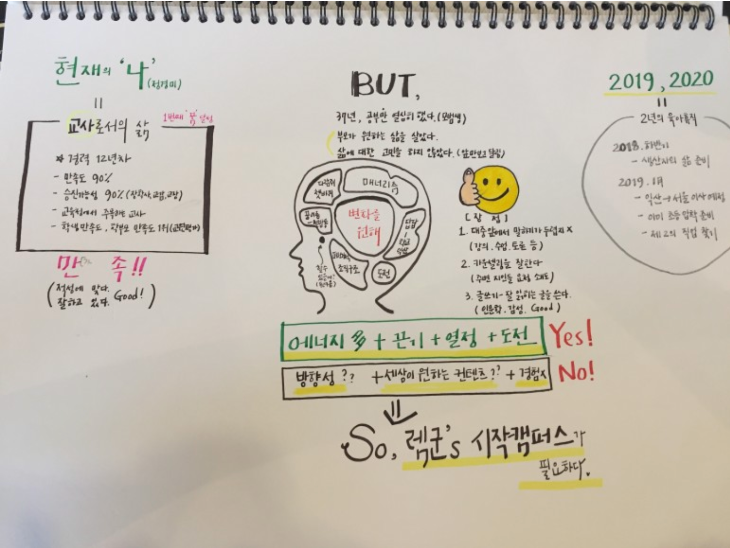 현재의 '나'
=
교사로서의 삶
1번째 '꿈' 달성
* 경력 12년차
- 만족도 90%
- 승진가능성 90% (장학사, 교감, 교장)
- 교육청에서 주목하는 교사
- 학생만족도, 학부모 만족도 1위
만족!!
(적성에 맞다.
잘하고 있다. Good!)
BUT,
37년, 공부만 열심히 했다. (모범생)
부모가 원하는 삶을 살았다.
삶에 대한 고민을 하지 않았다.
매너리즘
변화를
원해
도전
[장점]
1. 대중앞에서 말하기가 두렵지 X
(강의, 수업, 토론 등)
2. 카운셀링을 잘한다
3. 글쓰기 - 잘 읽히는 글을 쓴다.
(인문학, 감성, Good)
에너지 多 + 끈기 + 열정 + 도전
Yes!
방향성?? + 세상이 원하는 컨텐츠?? + 경험X
No!
So, 렘군's 시작캠퍼스가
필요하다.
2019, 2020
=
2년의 육아휴직
2018. 하반기
- 생산자의 삶 준비
2019. 1月
- 일산→서울 이사 예정
- 아이 초등 입학 준비
- 제 2의 직업 찾기